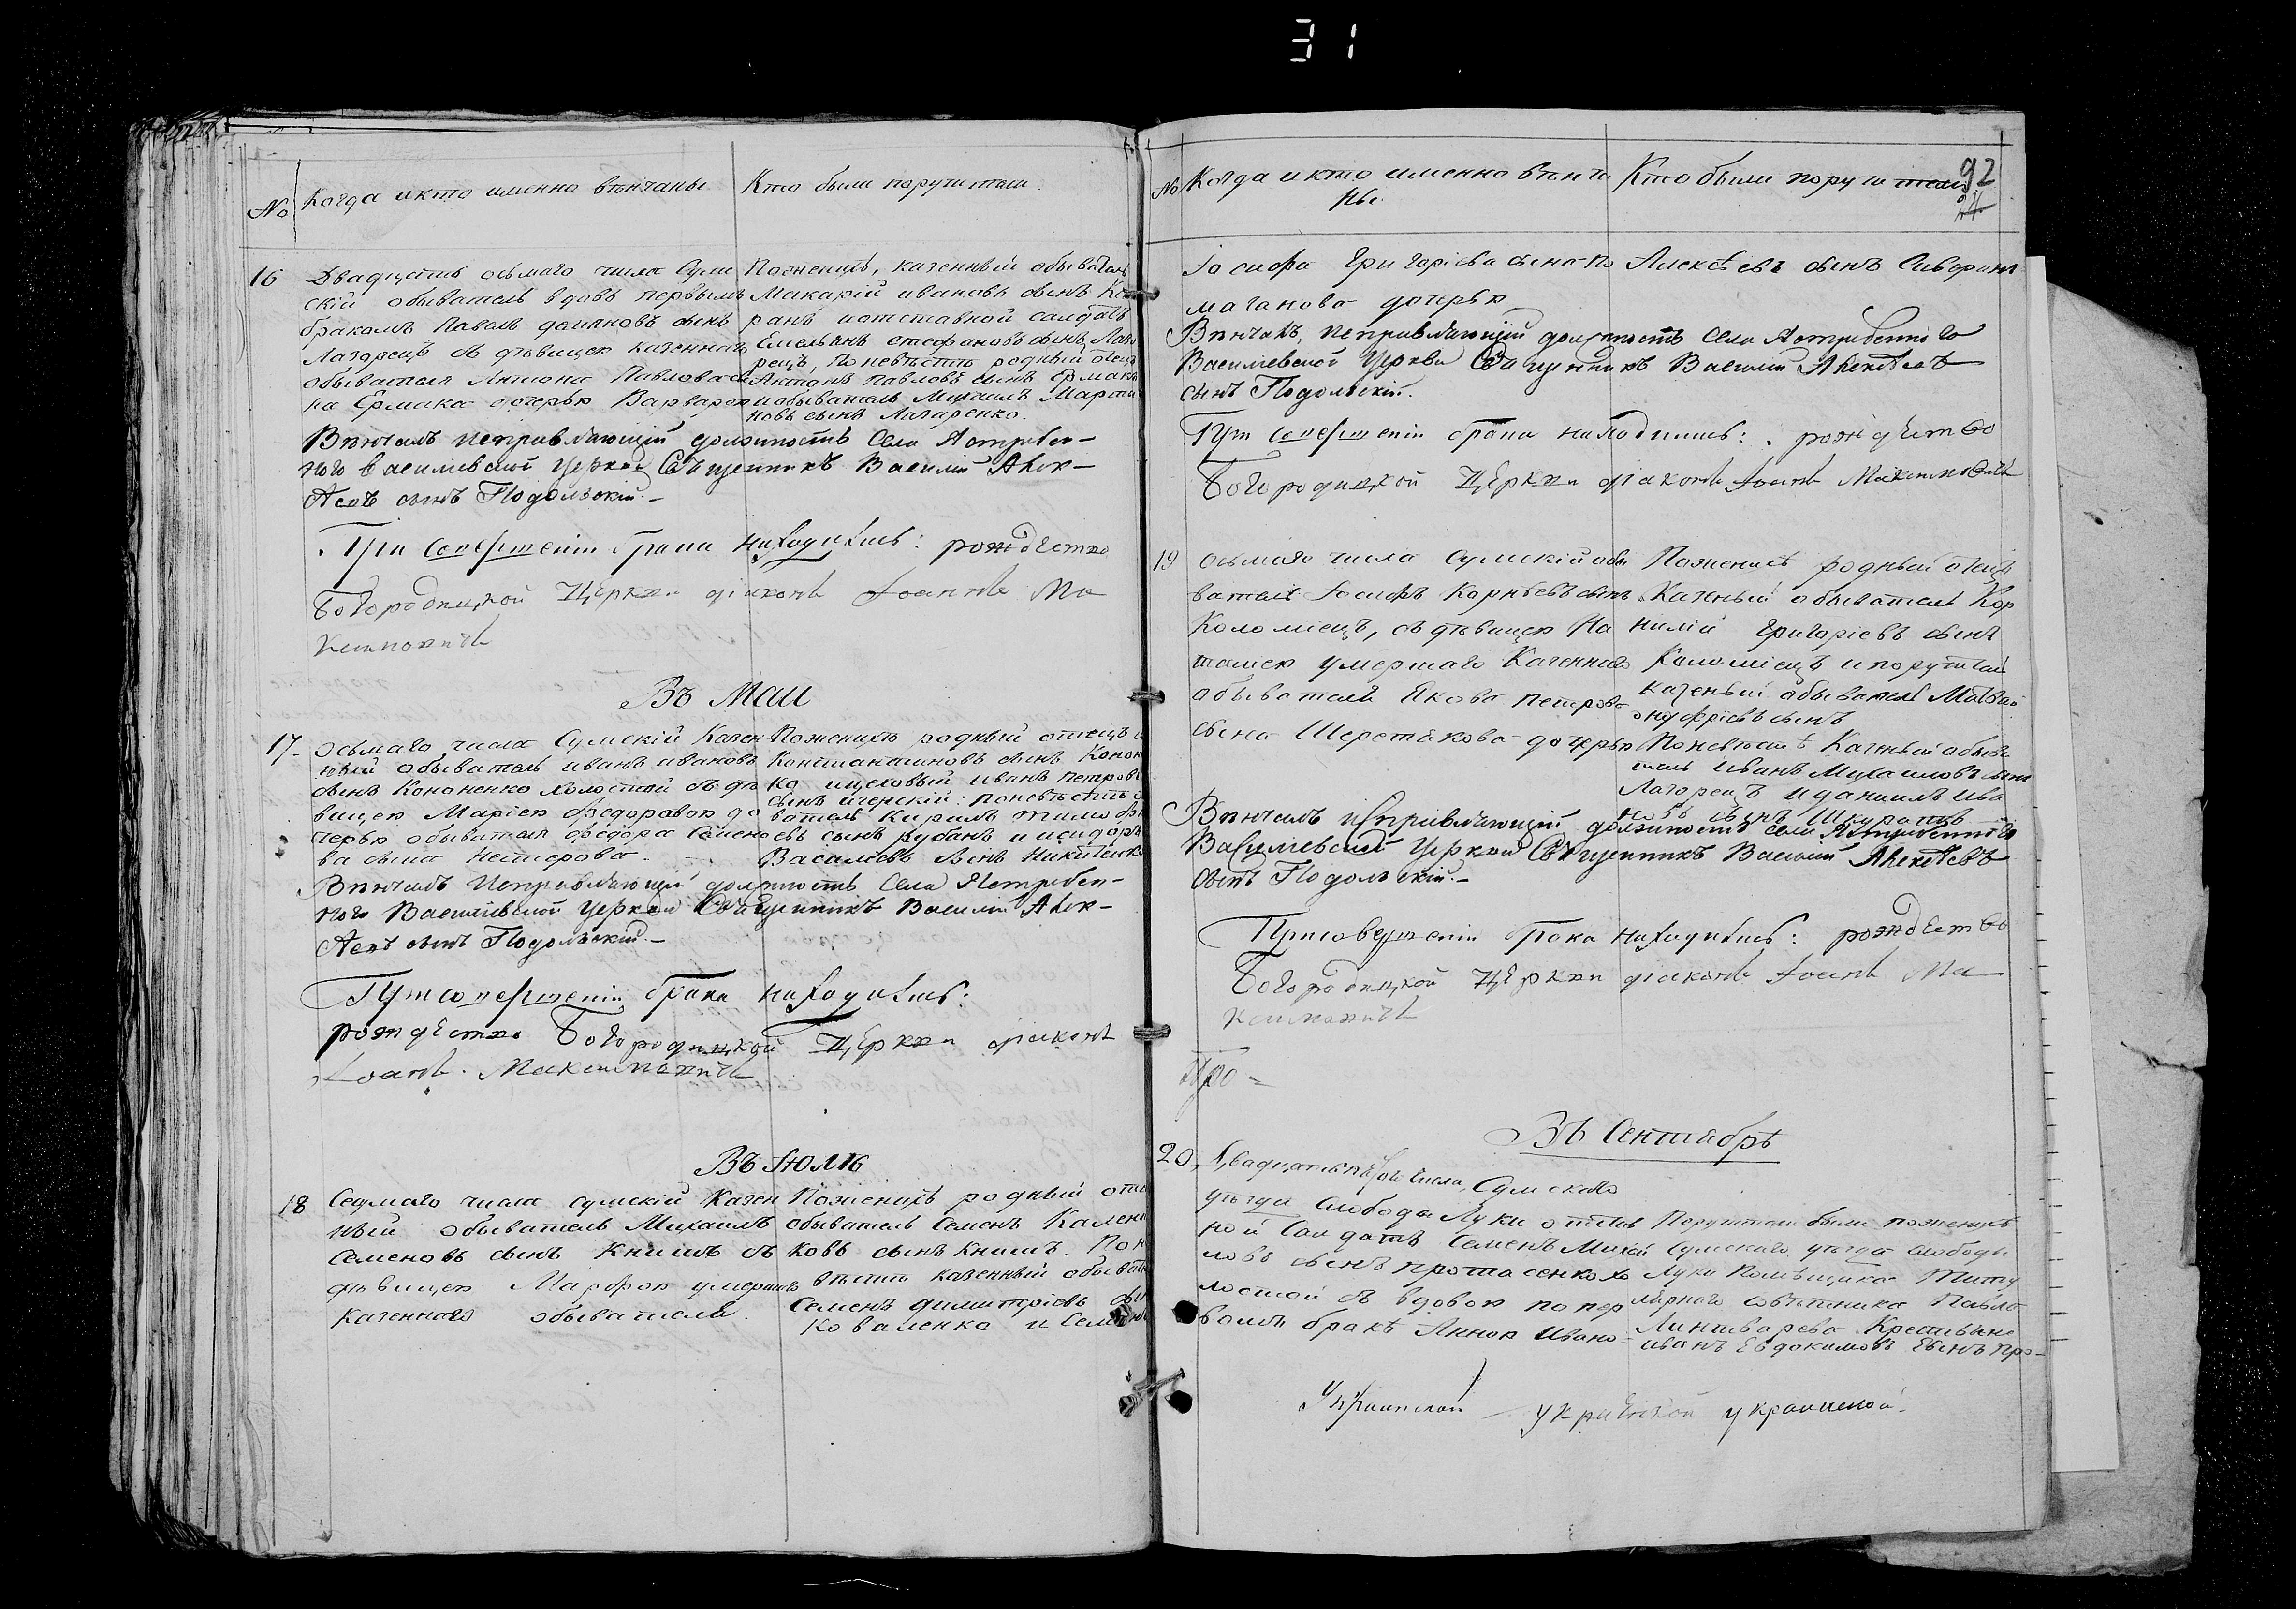 31
№ Когда и кто именно вѣнчаны
Кто были поручители
16 Двадцать осьмаго числа Сум
скій обыватель вдовъ первымъ
бракомъ Павелъ домяновъ сынъ
Лагорецъ съ дѣвицею казеннаго
обывателя Антона Павлова сы
на Ермака дочерью Варварою
Поженихѣ, казенный обыватель
Макарій ивановъ сынъ
ранъ иотставной салдатъ
Емельянъ стефановъ сынъ Лаго
рецъ, Поневѣстѣ родный отецъ
Антонъ павловъ сынъ Ермакъ
иобыватель Михаилъ Марти
новъ сынъ Лагиренко.
Вѣнчалъ исправляющій должность Села Ястребен-
ного васильевской Церкви Священникъ Василій Алек-
сѣевъ сынъ Подольскій.-
При совершеніи брака находились: рождество
Богородицкой Церкви діаконъ Іоаннъ Ма
ксимовичъ
Въ Маи
17- осьмаго числа Сумскій Казен
ный обыватель иванъ ивановъ
сынъ Кононенко холостой съ дѣ
вицею Маріею Федоровою до
черью обывателя федора Семено
ва сына Нестерова.
Поженихѣ родный отецъ и
Константиновъ сынъ Конон
ко ицеховый иванъ петровъ
сынъ игерскій: поневѣстѣ о
ватель Кирилъ тимофе
евъ сынъ рубанъ и исидоръ
Василовъ сынъ Никитенко
Вѣнчалъ Исправляющій должность Села Ястребен-
ного Васильевской Церкви Священникъ Василій Алек-
сѣевъ сынъ Подольскій.-
При совершеніи брака находились:
рождество Богородицкой Церкви діаконъ
Іоаннъ. Максимовичъ
Въ Іюлѣ
18 Седмаго числа сумскій Казен
ный обыватель Михаилъ
Семеновъ сынъ Книшъ съ
дѣвицею Марфою умершаго
казеннаго обывателя
Поженихѣ родный отецъ
обыватель Семенъ Калени
ковъ сынъ книшъ. Пон
вѣстѣ казенный обыват
Семенъ димитріевъ сын
Коваленко и Семенъ
92
№ Когда и кто именно вѣнча
ны.
Кто были поручители
Іосифа Григоріева сына По
маганова дочерью
Алексѣевъ сынъ
Вѣнчалъ, исправляющій должность Села Ястребенного
Васильевской Церкви Священникъ Василій Алексѣевъ
сынъ Подольскій.
При совершеніи брака находились: рождество
Богородицкой Церкви діаконъ Іоаннъ Максимовичъ
19 осьмаго числа Сумскій обы
ватель Іосифъ Корнѣевъ сынъ
Коломіецъ, съ дѣвицею На
талею умершаго Казеннаго
обывателя Якова петрова
сына Шерстякова дочерью
Поженихѣ родный отецъ
Казный обыватель Кор
нилій григоріевъ сынъ
Коломіецъ ипоручитель
казеный обыватель Матвѣй
онуфріевъ сынъ
Поневѣстѣ Казный обыва
тель иванъ Михаиловъ сынъ
Лагорецъ иданиилъ ива
новъ сынъ Шкурапъ
Вѣнчалъ исправляющій должность села Ястребенного
Васильевской Церкви Священникъ Василій Алексѣевъ
сынъ Подольскій.-
При совершеніи брака находились: рождество
Богородицкой Церкви діаконъ Іоаннъ Ма
ксимовичъ
Про=
Въ Сентябрѣ
20, Двадцать числа, Сумскаго
уѣзда Слободы Луки отстав
ной Салдатъ Семенъ Михай
ловъ сынъ протасенко хо
лостой съ вдовою по пер
вомъ бракѣ Анною Ивано-
Поручители были поженихѣ
Сумскаго уѣзда слободы
Луки помѣщика Титу
лярного совѣтника Павла
Линтварева Крестьяне
иванъ Евдокимовъ сынъ про-
Украинской украинской украинской.